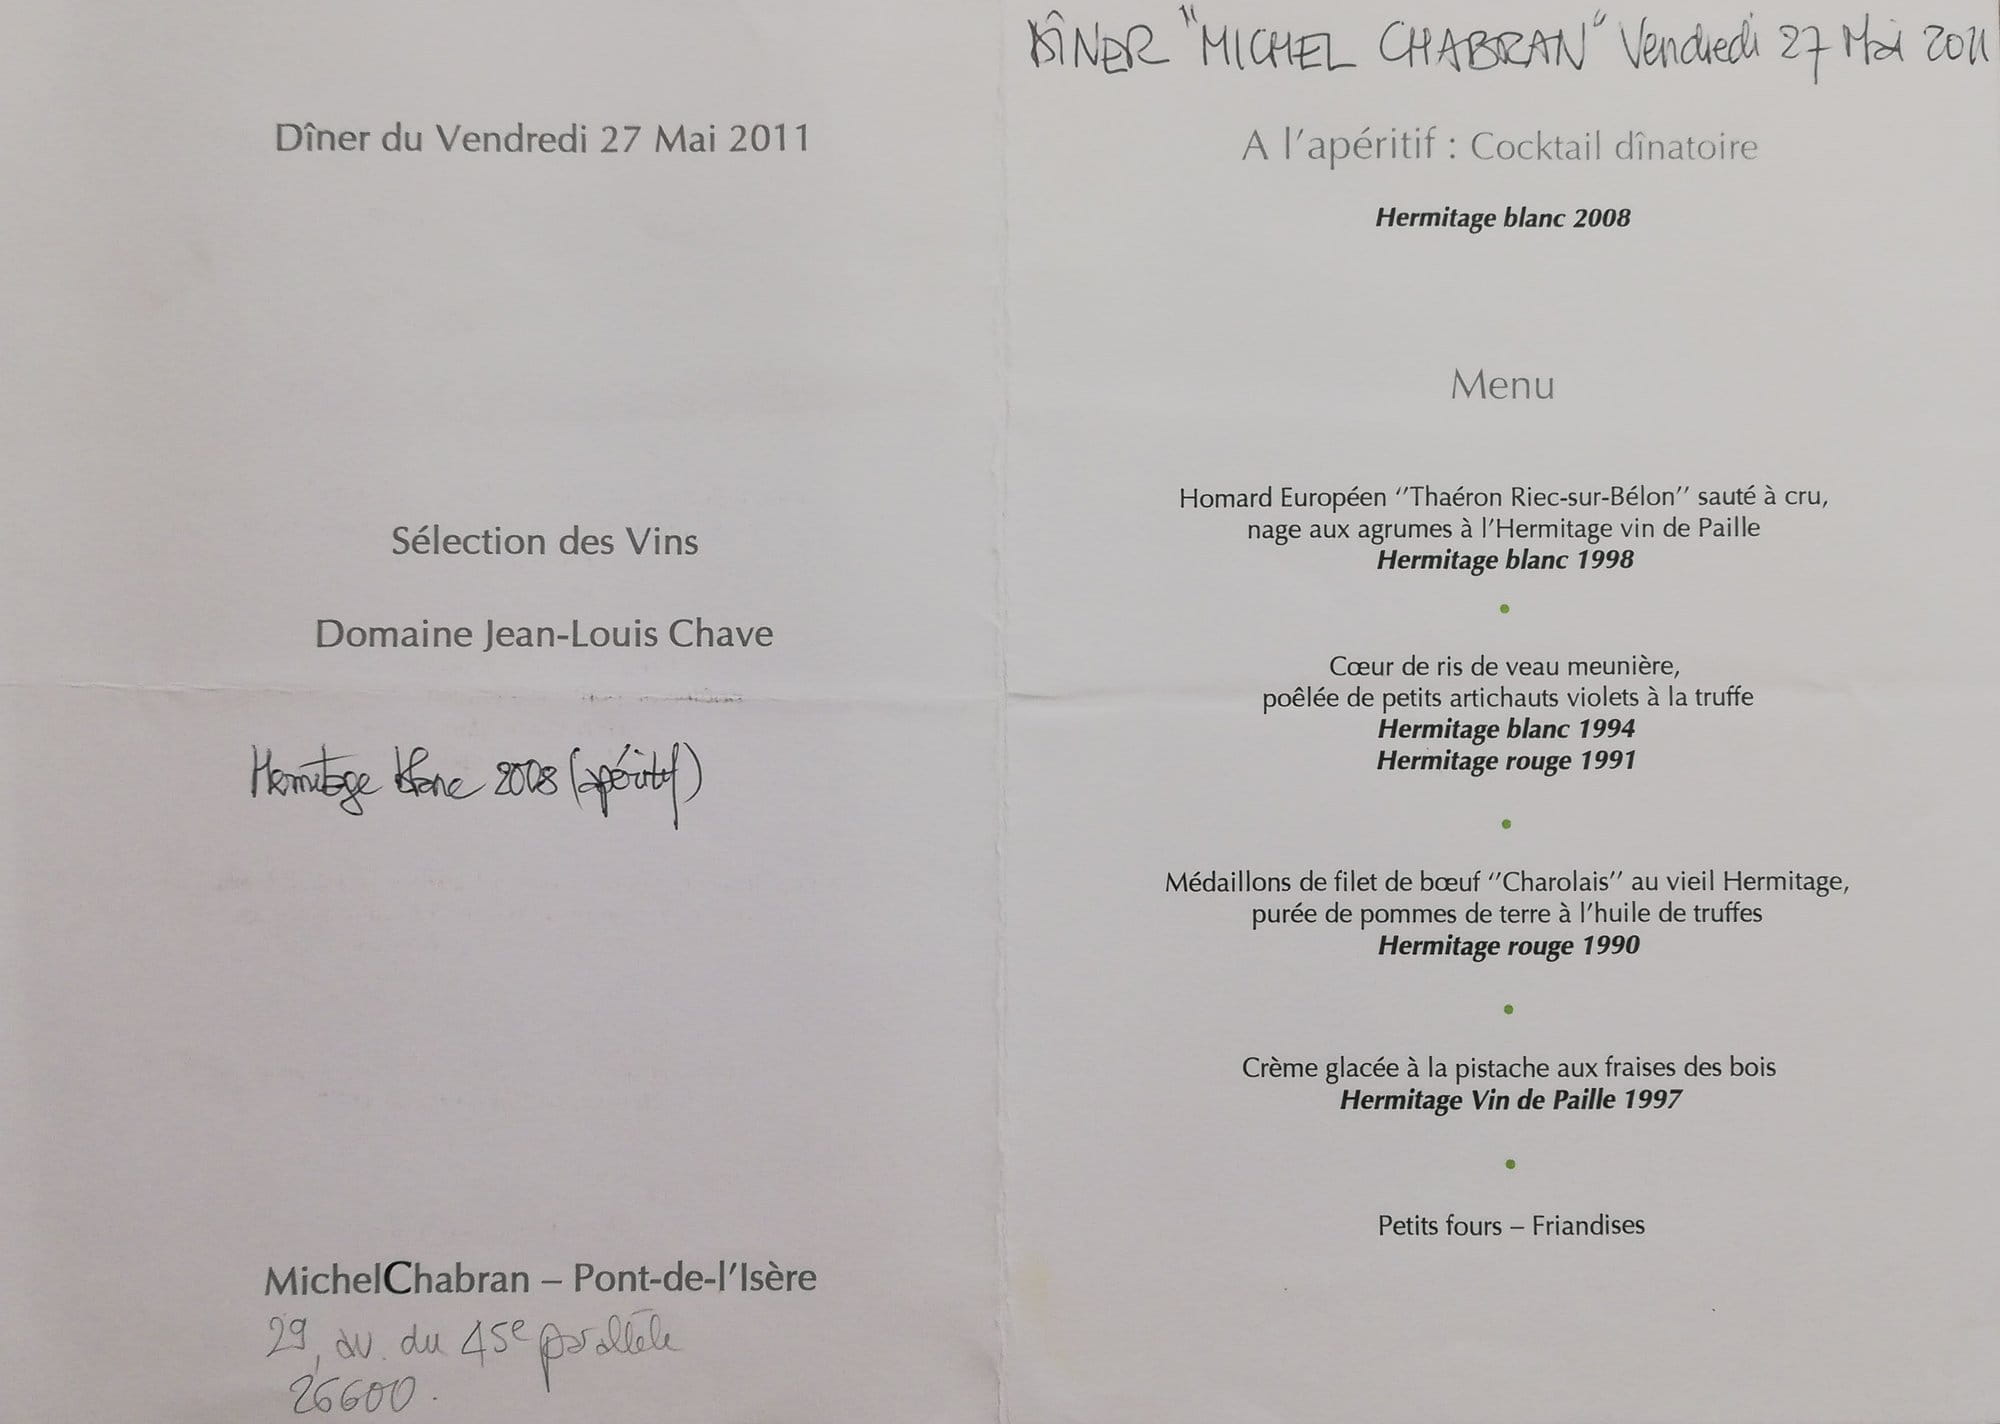 Dîner du Vendredi 27 Mai 2011
Sélection des Vins
Domaine Jean-Louis Chave
Hermitage blanc 2008 (apéritif)
MichelChabran – Pont-de-l'Isère
29, av. du 45e parallèle
26600.
DÎNER "MICHEL CHABRAN" Vendredi 27 Mai 2011
A l'apéritif : Cocktail dînatoire
Hermitage blanc 2008
Menu
Homard Européen ‘’Thaéron Riec-sur-Bélon’’ sauté à cru,
nage aux agrumes à l'Hermitage vin de Paille
Hermitage blanc 1998
•
Cœur de ris de veau meunière,
poêlée de petits artichauts violets à la truffe
Hermitage blanc 1994
Hermitage rouge 1991
•
Médaillons de filet de bœuf ‘’Charolais’’ au vieil Hermitage,
purée de pommes de terre à l'huile de truffes
Hermitage rouge 1990
•
Crème glacée à la pistache aux fraises des bois
Hermitage Vin de Paille 1997
•
Petits fours – Friandises